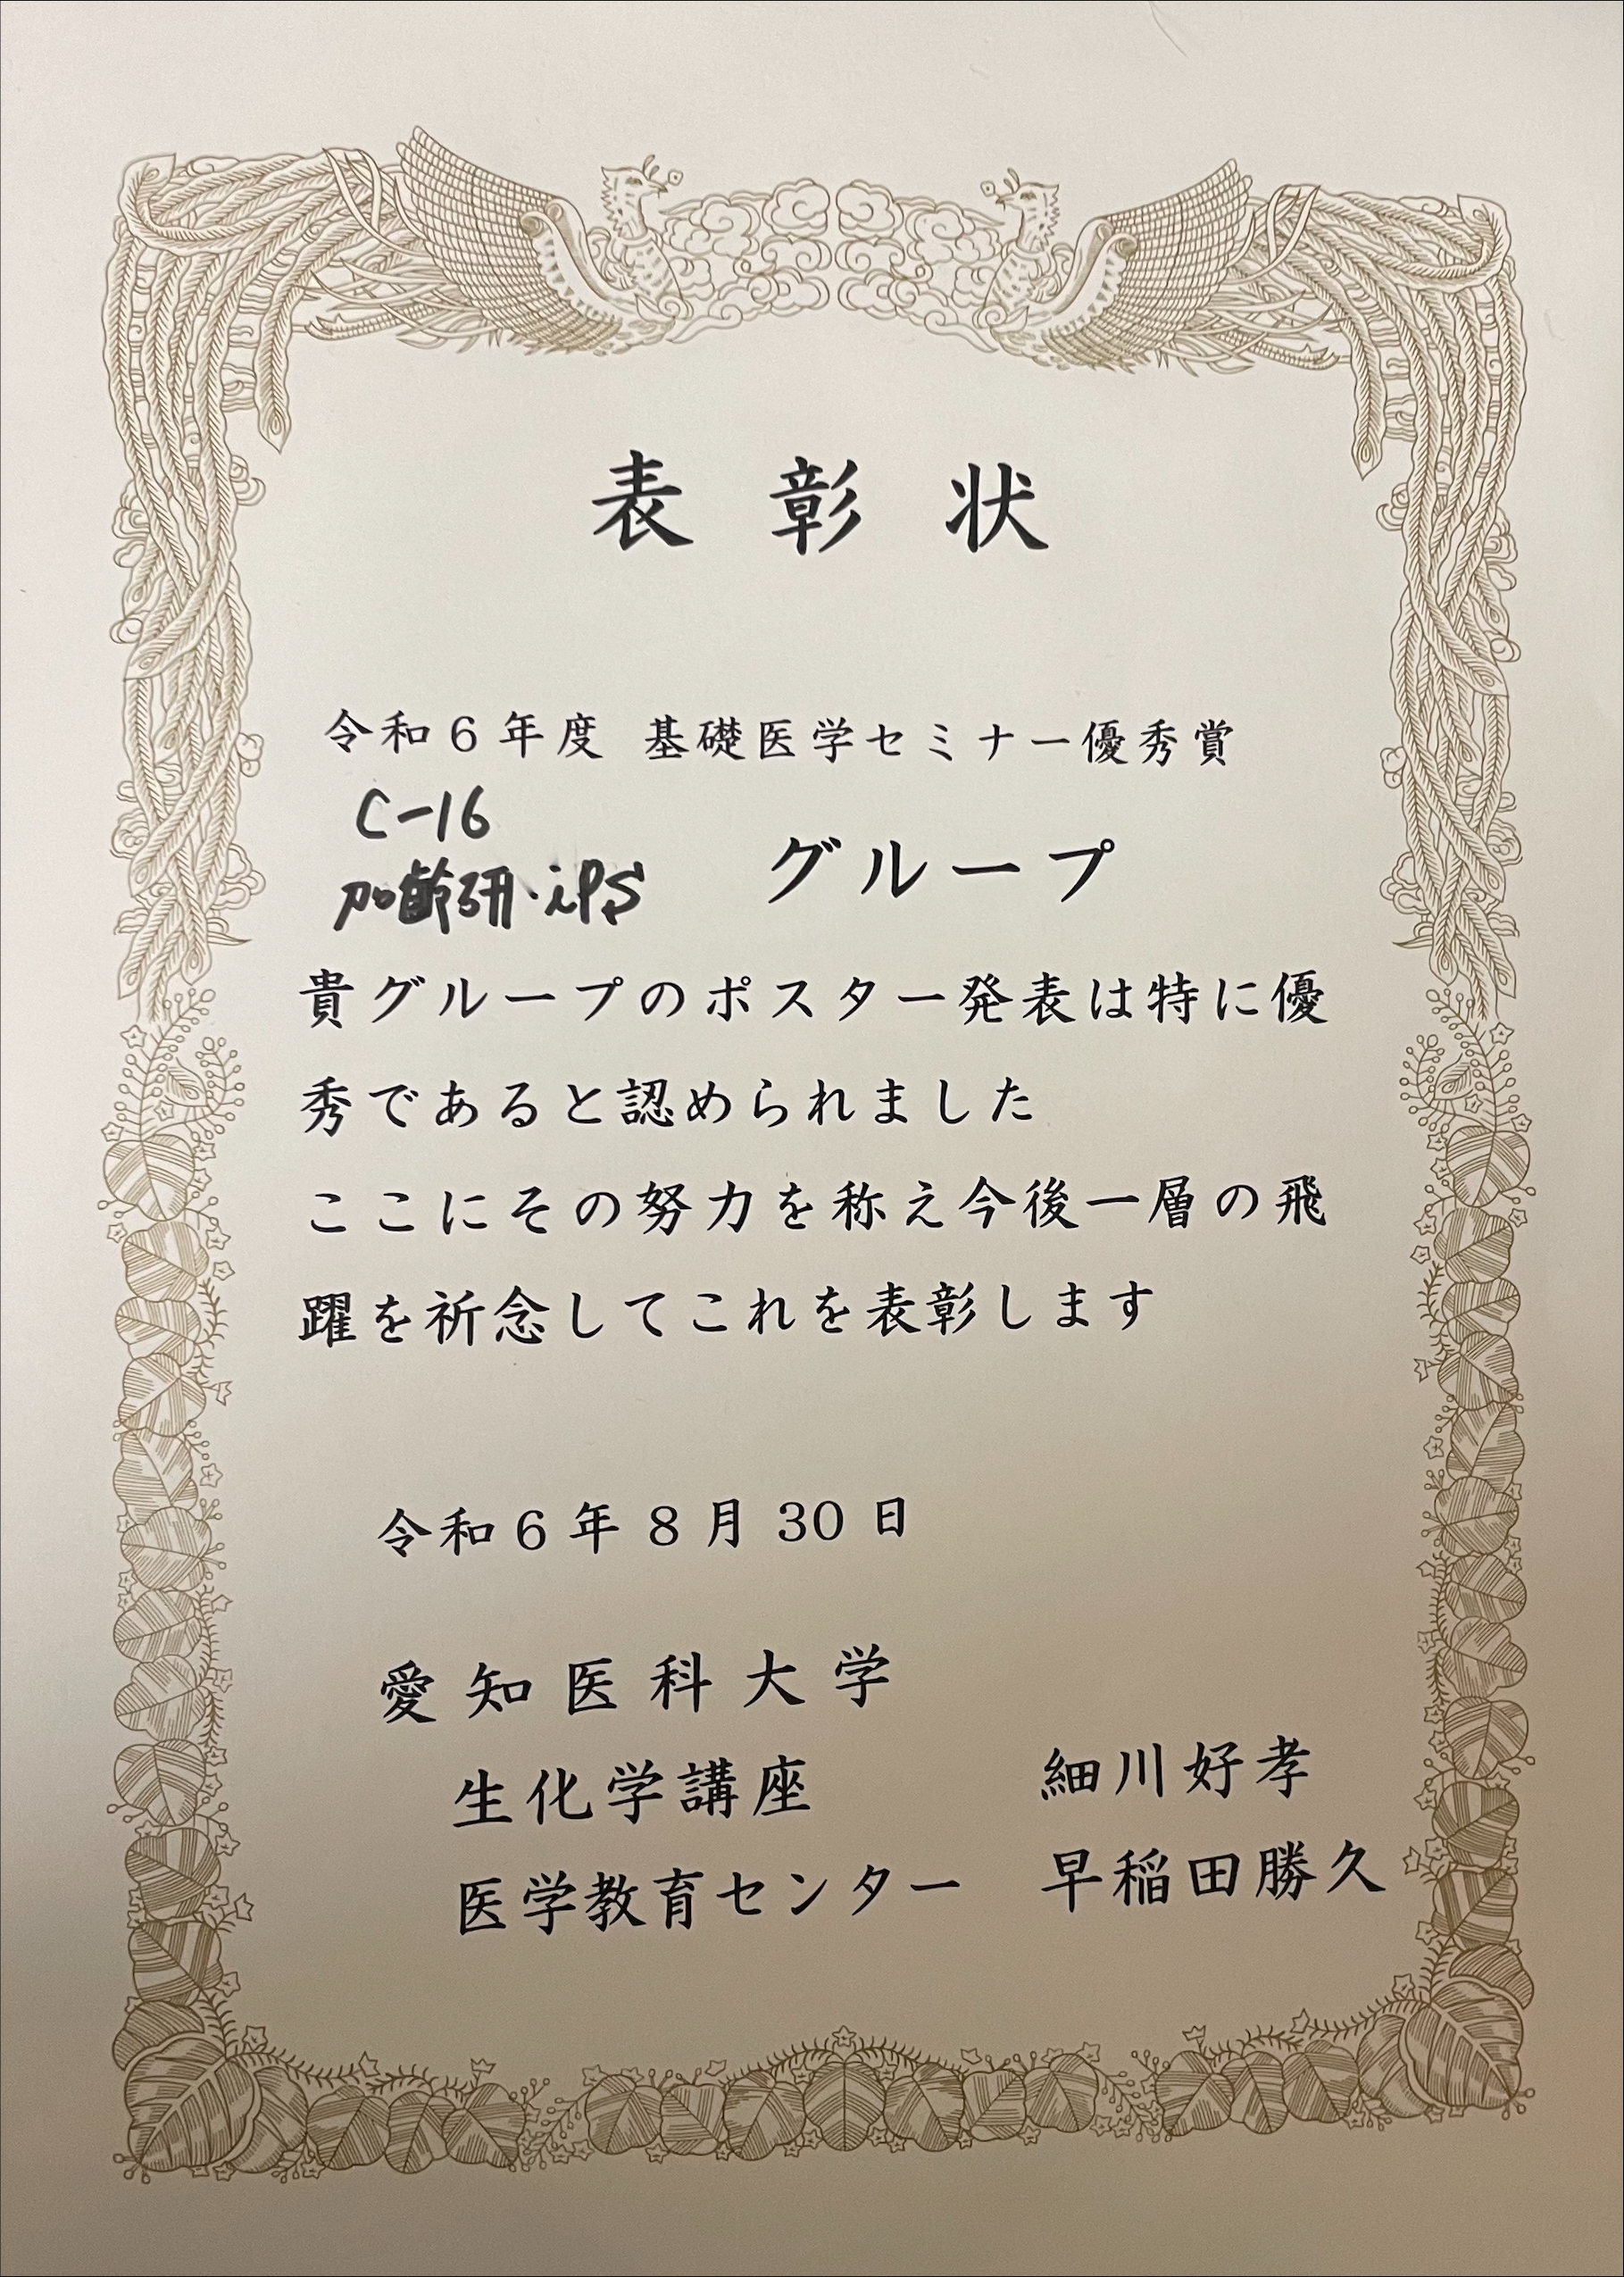 表彰状
令和6年度 基礎医学セミナー優秀賞
C-16
加齢研・iPS グループ
貴グループのポスター発表は特に優
秀であると認められました
ここにその努力を称え今後一層の飛
躍を祈念してこれを表彰します
令和6年8月30日
愛知医科大学
生化学講座 細川好孝
医学教育センター 早稲田勝久